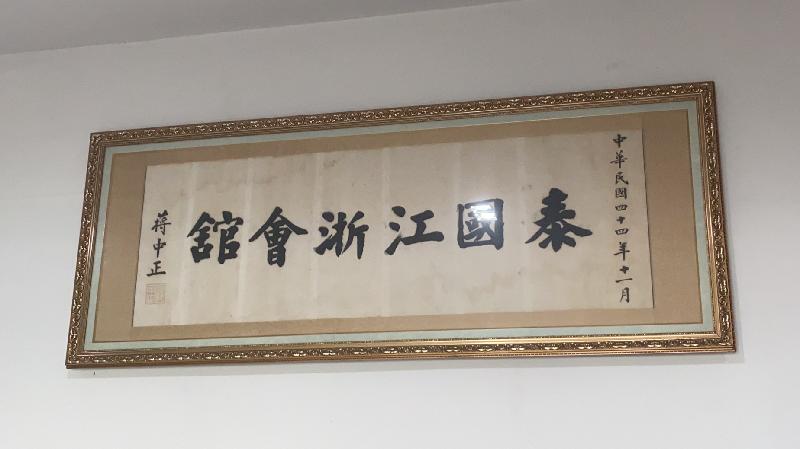 中華民國四十四年十一月
泰國江浙會館
蔣中正